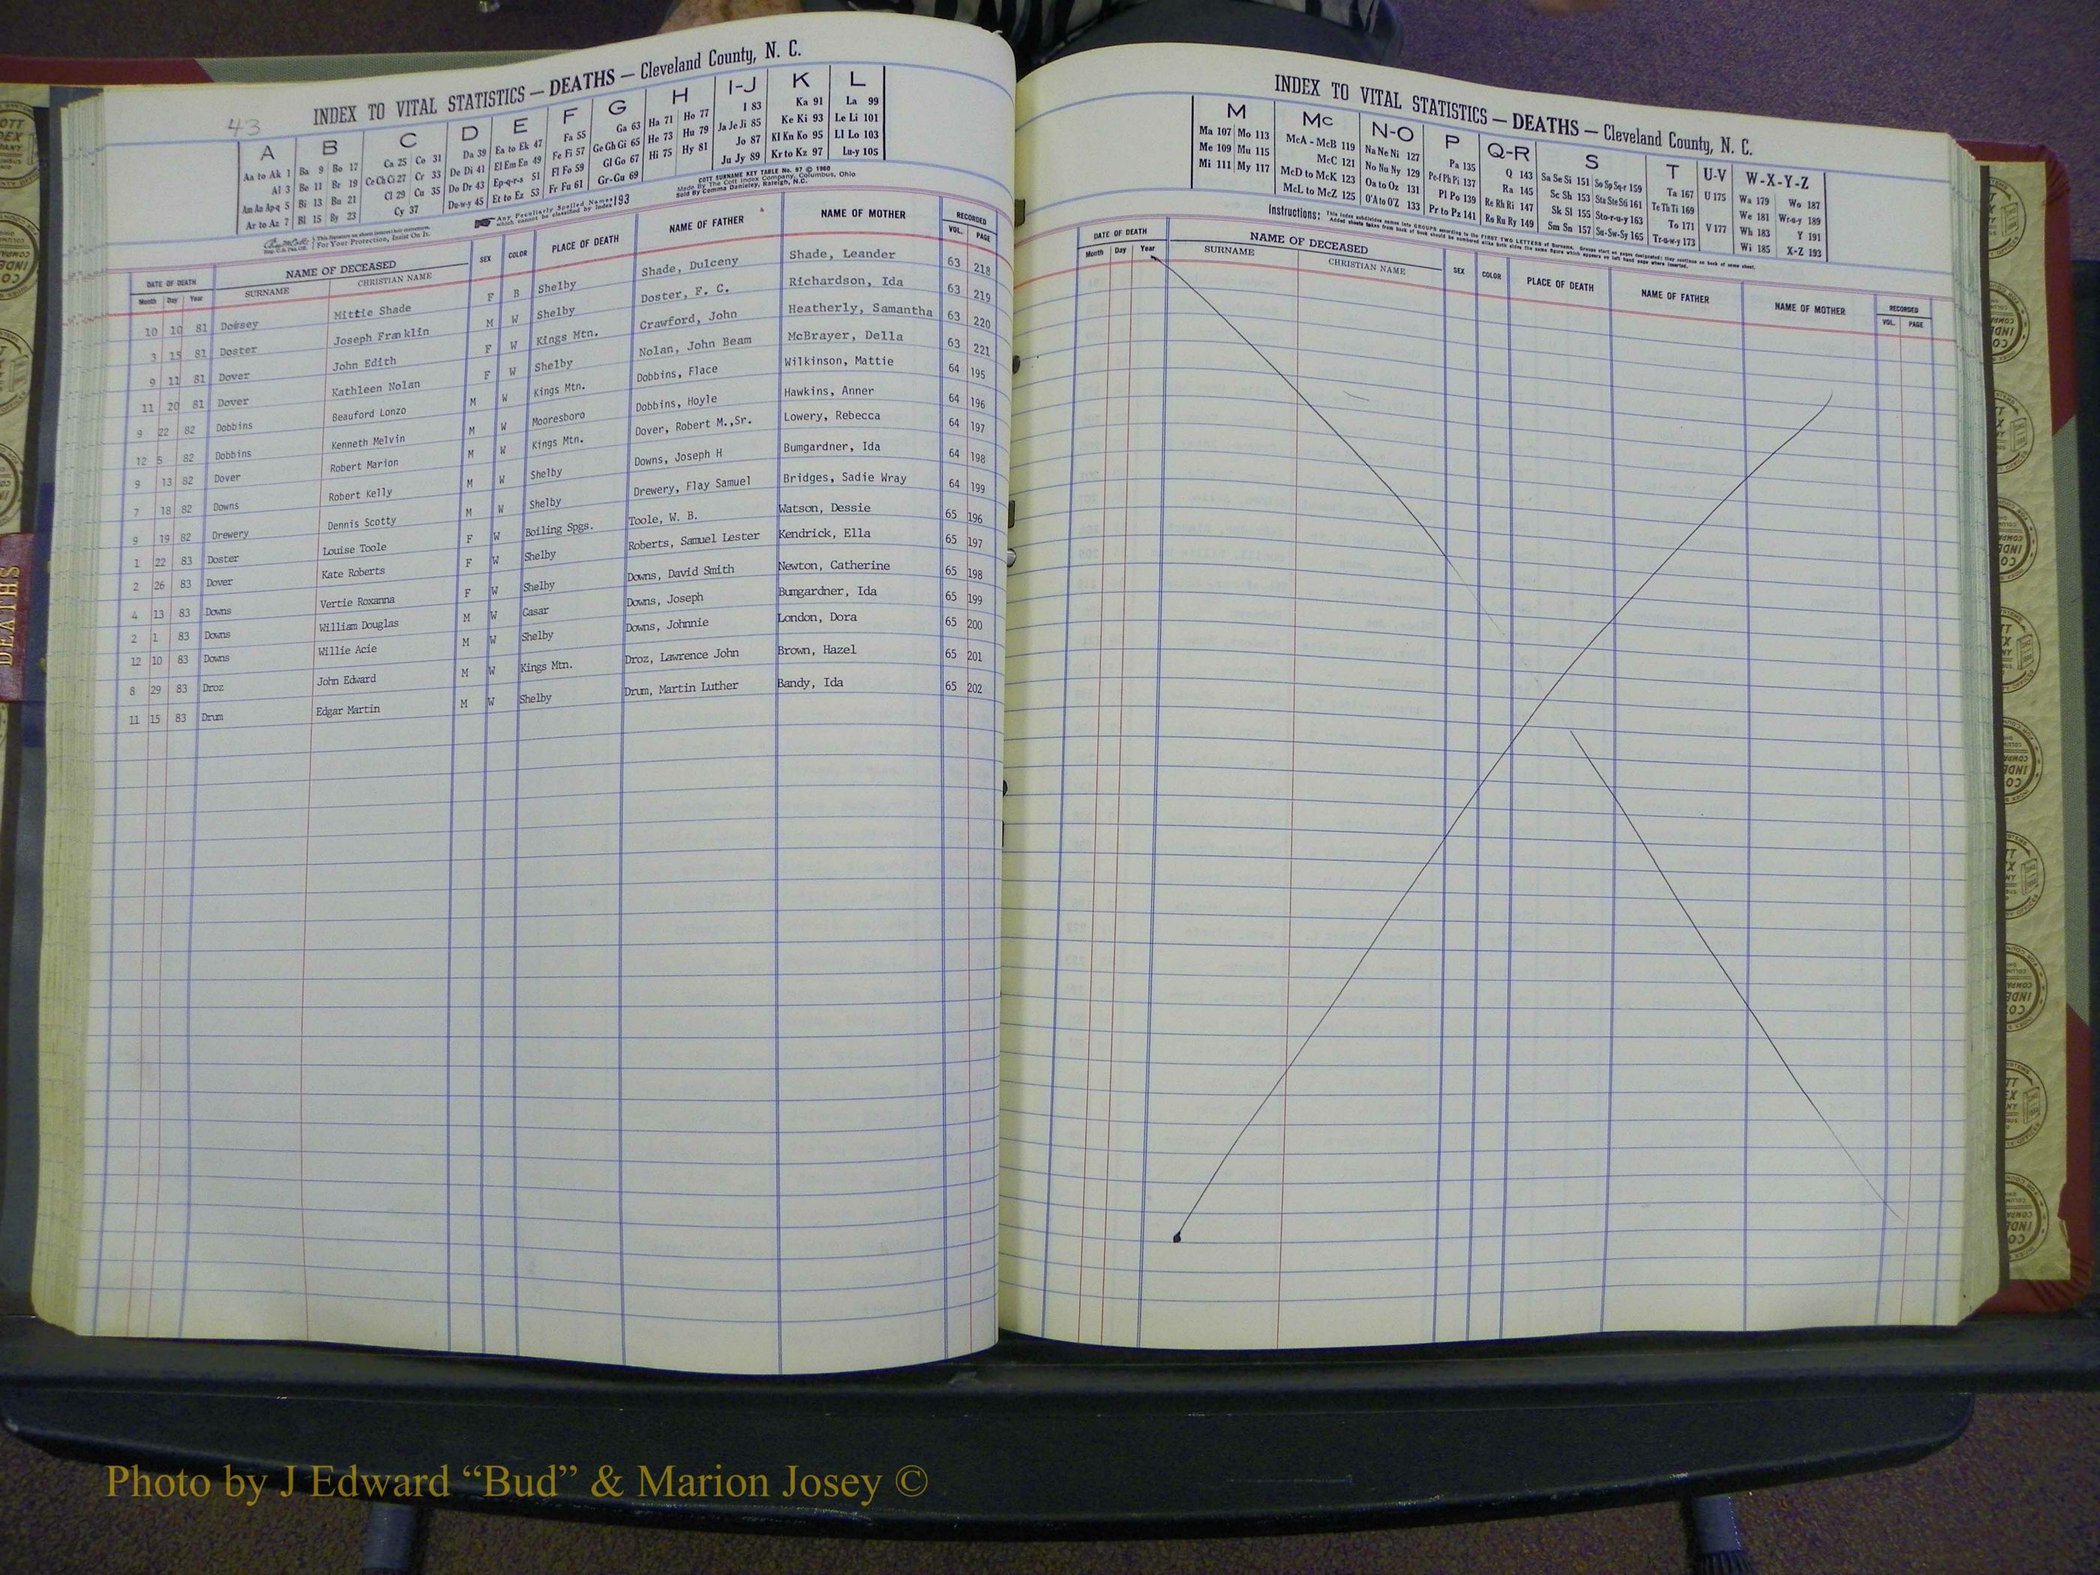 43
INDEX TO VITAL STATISTICS — DEATHS — Cleveland County, N. C.
A B C D E F G H I-J K L
Aa to Ak 1 Ba 9 Bo 17 Ca 25 Co 31 Da 39 Ea to Ek 47 Fa 55 Ga 63 Ha 71 Ho 77 I 83 Ka 91 La 99
Al 3 Be 11 Br 19 Ce Ch Ci 27 Cr 33 De Di 41 El Em En 49 Fe Fi 57 Ge Gh Gi 65 He 73 Hu 79 Ja Je Ji 85 Ke Ki 93 Le Li 101
Am An Ap-q 5 Bi 13 Bu 21 Cl 29 Cu 35 Do Dr 43 Ep-q-r-s 51 Fl Fo 59 Gl Go 67 Hi 75 Hy 81 Jo 87 Kl Kn Ko 95 Ll Lo 103
Ar to Az 7 Bl 15 By 23 Cy 37 Du-w-y 45 Et to Ez 53 Fr Fu 61 Gr-Gu 69 Ju Jy 89 Kr to Kz 97 Lu-y 105
This Signature on sheets insures their correctness. For Your Protection, Insist On It.
Any Peculiarly Spelled Names which cannot be classified by Index 193
COTT SURNAME KEY TABLE No. 97 © 1960
Made By The Cott Index Company, Columbus, Ohio
Sold By Comma Danieley, Raleigh, N.C.
DATE OF DEATH NAME OF DECEASED SEX COLOR PLACE OF DEATH NAME OF FATHER NAME OF MOTHER RECORDED
Month Day Year SURNAME CHRISTIAN NAME VOL. PAGE
10 10 81 Dorsey Mittie Shade F B Shelby Shade, Dulceny Shade, Leander 63 218
3 15 81 Doster Joseph Franklin M W Shelby Doster, F. C. Richardson, Ida 63 219
9 11 81 Dover John Edith F W Kings Mtn. Crawford, John Heatherly, Samantha 63 220
11 20 81 Dover Kathleen Nolan F W Shelby Nolan, John Beam McBrayer, Della 63 221
9 22 82 Dobbins Beauford Lonzo M W Kings Mtn. Dobbins, Flace Wilkinson, Mattie 64 195
12 5 82 Dobbins Kenneth Melvin M W Mooresboro Dobbins, Hoyle Hawkins, Anner 64 196
9 13 82 Dover Robert Marion M W Kings Mtn. Dover, Robert M.,Sr. Lowery, Rebecca 64 197
7 18 82 Downs Robert Kelly M W Shelby Downs, Joseph H Bumgardner, Ida 64 198
9 19 82 Drewery Dennis Scotty M W Shelby Drewery, Flay Samuel Bridges, Sadie Wray 64 199
1 22 83 Doster Louise Toole F W Boiling Spgs. Toole, W. B. Watson, Dessie 65 196
2 26 83 Dover Kate Roberts F W Shelby Roberts, Samuel Lester Kendrick, Ella 65 197
4 13 83 Downs Vertie Roxanna F W Shelby Downs, David Smith Newton, Catherine 65 198
2 1 83 Downs William Douglas M W Casar Downs, Joseph Bumgardner, Ida 65 199
12 10 83 Downs Willie Acie M W Shelby Downs, Johnnie London, Dora 65 200
8 29 83 Droz John Edward M W Kings Mtn. Droz, Lawrence John Brown, Hazel 65 201
11 15 83 Drum Edgar Martin M W Shelby Drum, Martin Luther Bandy, Ida 65 202
INDEX TO VITAL STATISTICS — DEATHS — Cleveland County, N. C.
M Mc N-O P Q-R S T U-V W-X-Y-Z
Ma 107 Mo 113 McA - McB 119 Na Ne Ni 127 Pa 135 Q 143 Sa Se Si 151 So Sp Sq-r 159 Ta 167 U 175 Wa 179 Wo 187
Me 109 Mu 115 McC 121 No Nu Ny 129 Pe-f Ph Pi 137 Ra 145 Sc Sh 153 Sta Ste Sti 161 Te Th Ti 169 We 181 Wr-u-y 189
Mi 111 My 117 McD to McK 123 Oa to Oz 131 Pl Po 139 Re Rh Ri 147 Sk Sl 155 Sto-r-u-y 163 To 171 V 177 Wh 183 Y 191
McL to McZ 125 O'A to O'Z 133 Pr to Pz 141 Ro Ru Ry 149 Sm Sn 157 Su-Sw-Sy 165 Tr-u-w-y 173 Wi 185 X-Z 193
Instructions: This index subdivides names into GROUPS according to the FIRST TWO LETTERS of Surname.
DATE OF DEATH NAME OF DECEASED SEX COLOR PLACE OF DEATH NAME OF FATHER NAME OF MOTHER RECORDED
Month Day Year SURNAME CHRISTIAN NAME VOL. PAGE
DEATHS
Photo by J Edward “Bud” & Marion Josey ©